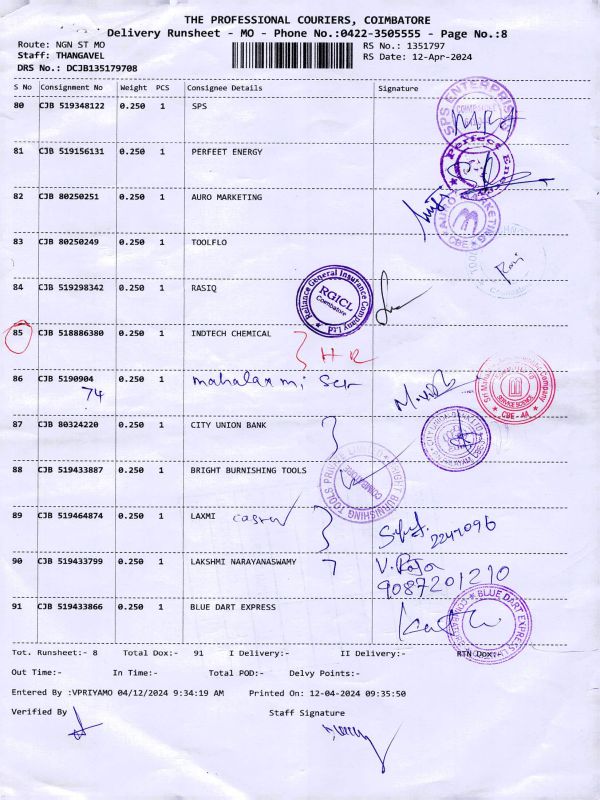 THE PROFESSIONAL COURIERS, COIMBATORE
Delivery Runsheet - MO - Phone No.:0422-3505555 - Page No.:8
Route: NGN ST MO RS No.: 1351797
Staff: THANGAVEL RS Date: 12-Apr-2024
DRS No.: DCJB135179708
S No Consignment No Weight PCS Consignee Details Signature
80 CJB 519348122 0.250 1 SPS
SPS ENTERPRISE
81 CJB 519156131 0.250 1 PERFEET ENERGY
Perfect Ene
82 CJB 80250251 0.250 1 AURO MARKETING
AURO MARKETING CBE
83 CJB 80250249 0.250 1 TOOLFLO
Ravi
84 CJB 519298342 0.250 1 RASIQ
Reliance General Insurance Company Ltd RGICL Coimbatore
85 CJB 518886380 0.250 1 INDTECH CHEMICAL
HR
86 CJB 5190904 0.250 1 mahalaxmi
74
CBE - AA
87 CJB 80324220 0.250 1 CITY UNION BANK
88 CJB 519433887 0.250 1 BRIGHT BURNISHING TOOLS
BRIGHT BURNISHING TOOLS PRIVATE COIMBATORE
89 CJB 519464874 0.250 1 LAXMI
2247096
90 CJB 519433799 0.250 1 LAKSHMI NARAYANASWAMY V. Raja
9087201210
91 CJB 519433866 0.250 1 BLUE DART EXPRESS
BLUE DART EXPRESS
Tot. Runsheet:- 8 Total Dox:- 91 I Delivery:- II Delivery:- RTN Dox:-
Out Time:- In Time:- Total POD:- Delvy Points:-
Entered By :VPRIYAMO 04/12/2024 9:34:19 AM Printed On: 12-04-2024 09:35:50
Verified By Staff Signature